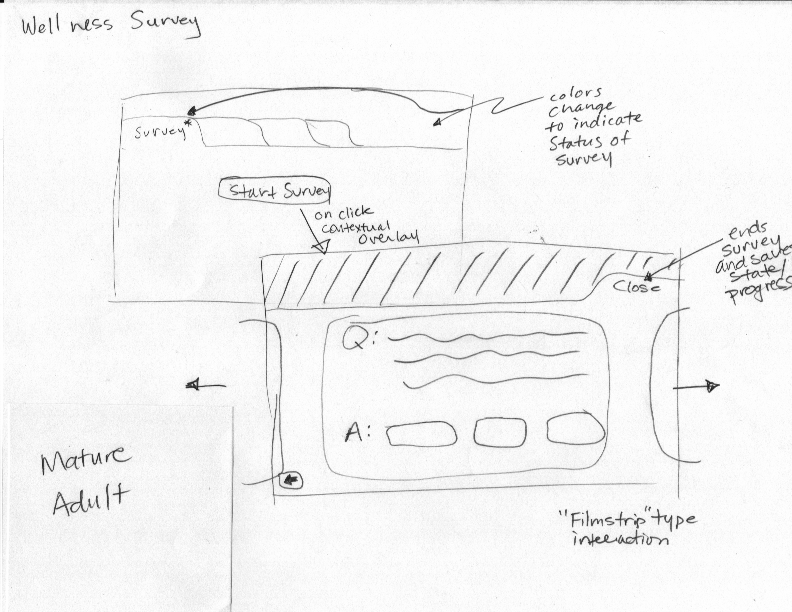 Wellness Survey
colors
change
to indicate
Status of
survey
Survey*
Start Survey
on click
contextual
overlay
ends
survey
and saves
state/
progress
Close
Q:
A:
Mature
Adult
"Filmstrip" type
interaction